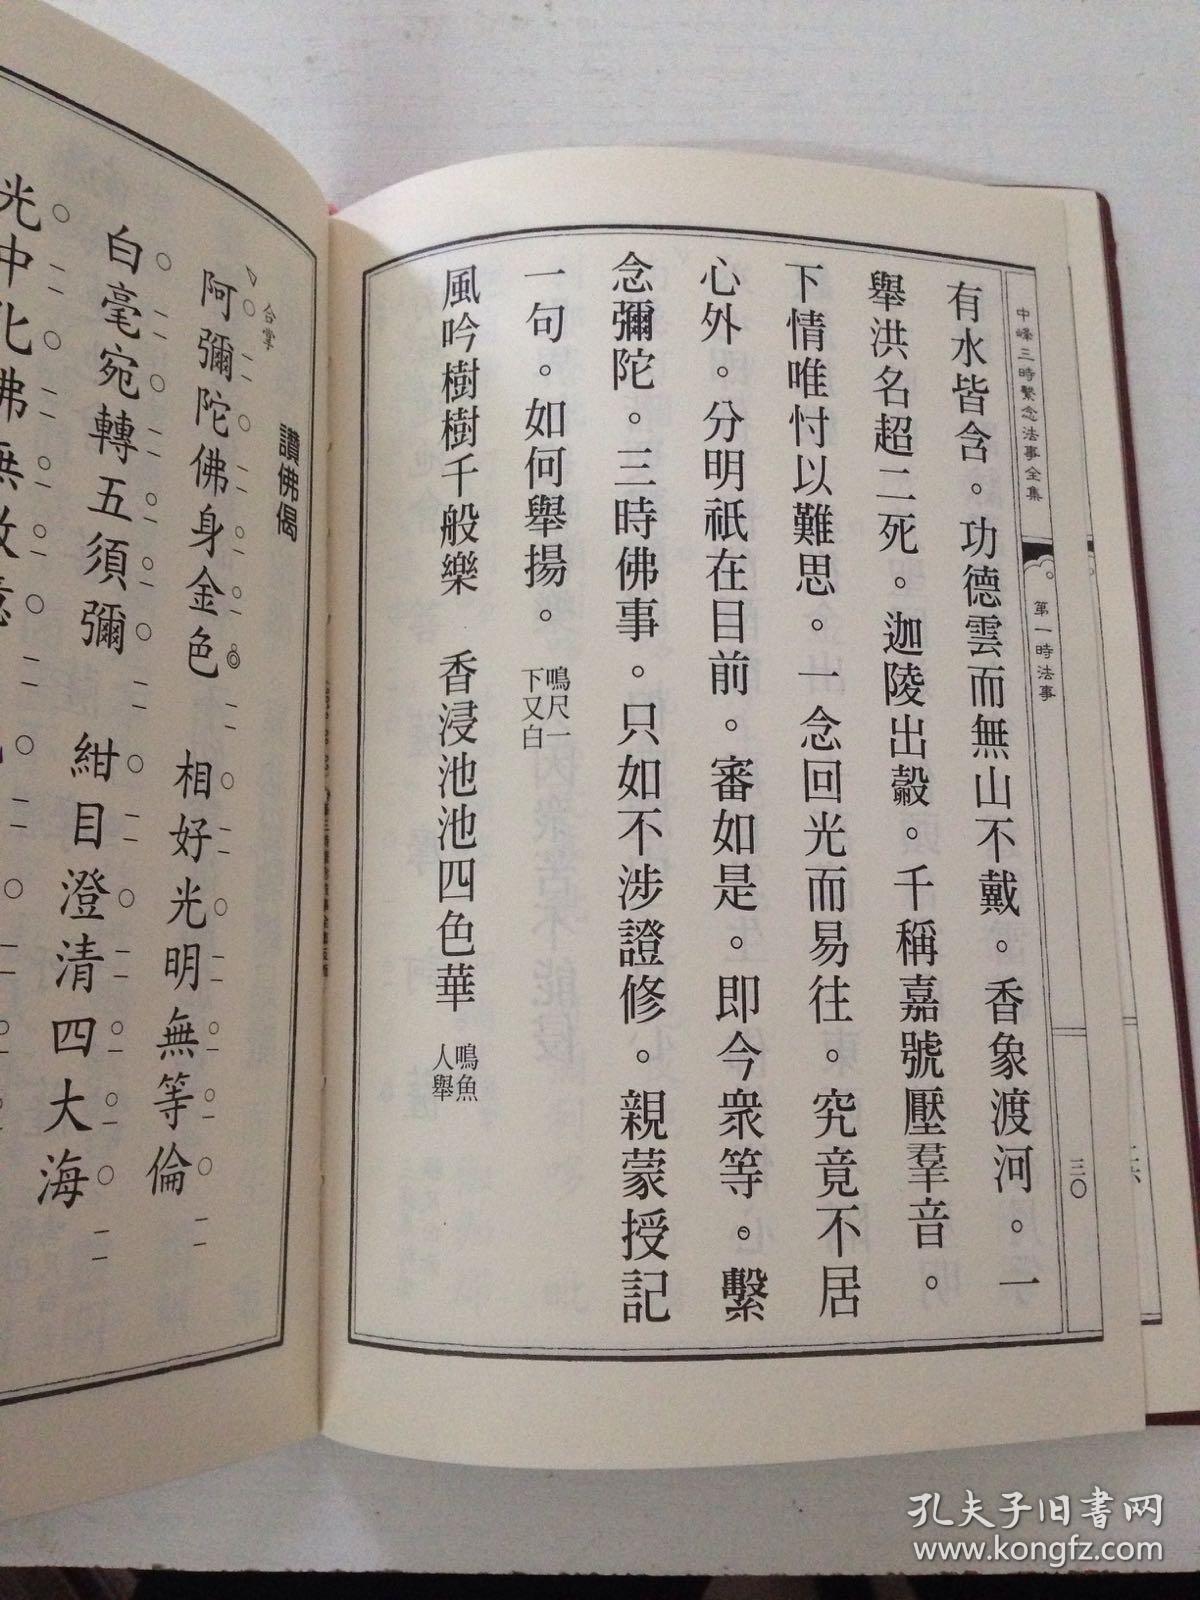 中峰三時繫念法事全集
第一時法事
三〇
有水皆含。功德雲而無山不戴。香象渡河。一
舉洪名超二死。迦陵出㲉。千稱嘉號壓羣音。
下情唯忖以難思。一念回光而易往。究竟不居
心外。分明祇在目前。審如是。即今衆等。繫
念彌陀。三時佛事。只如不涉證修。親蒙授記
一句。如何舉揚。鳴尺一
下又白
風吟樹樹千般樂　香浸池池四色華　鳴魚
人舉
讚佛偈
合掌
阿彌陀佛身金色　相好光明無等倫
白毫宛轉五須彌　紺目澄清四大海
光中化佛無數意
二六
孔夫子旧書网
www.kongfz.com